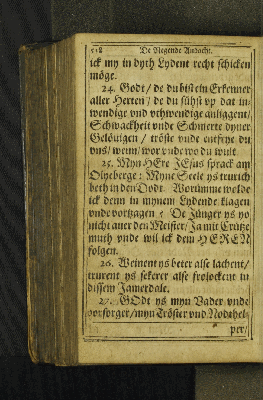 De Negende Andacht.
ick my in dyth Lydent recht schicken
möge.
24. Godt / de du bist ein Erkenner
aller Herten / de du sühst vp dat in-
wendige vnd vthwendige anliggent /
Schwackheit vnde Schmerte dyner
Gelöuigen / tröste vnde entfrye du
vns / wenn / wor vnde wo du wult.
25. Myn HEre JEsus sprack am
Olyeberge: Myne Seele ys trurich
beth in den Dodt. Worümme wolde
ick denn in mynem Lydende klagen
vnde vortzagen? De Jünger ys yo
nicht auer den Meister / Ja mit Crütze
muth vnde wil ick dem HEREN
folgen.
26. Weinent ys beter alse lachent /
trurent ys sekerer alse frolockent in
dissem Jamerdale.
27. GOdt ys myn Vader vnde
vorsorger / myn Tröster vnd Nodthel-
per /